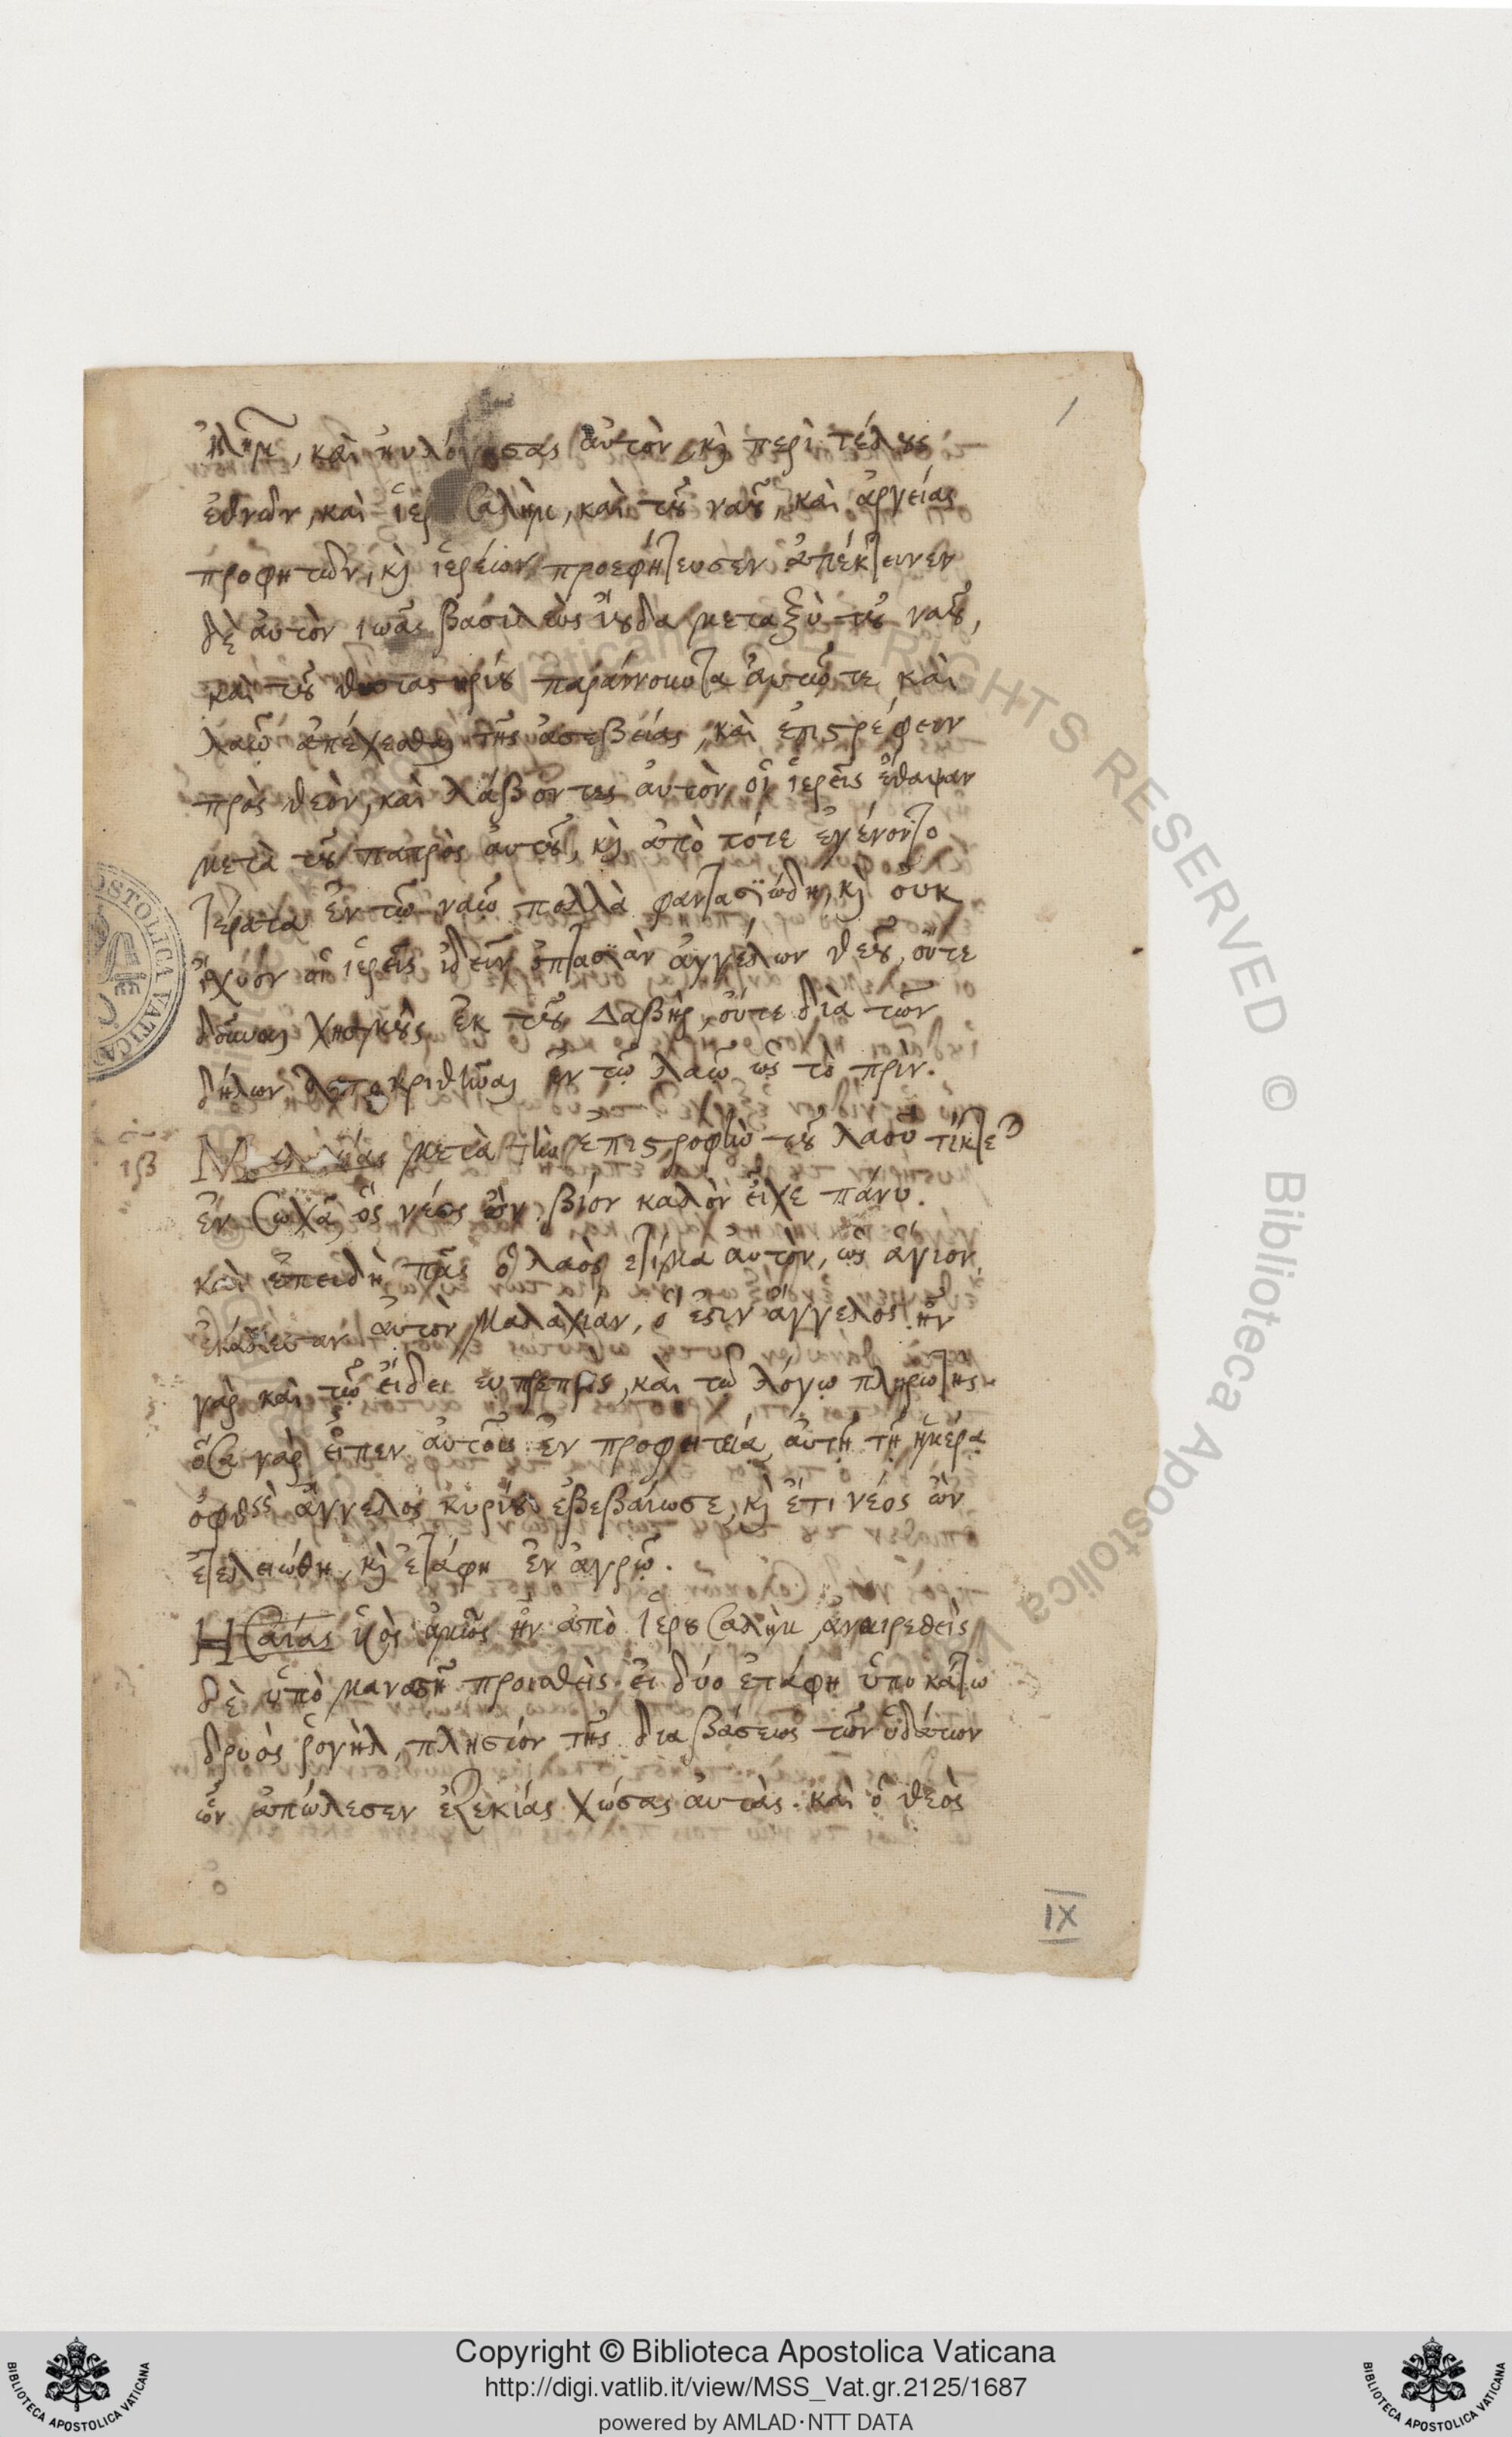 ἱλημ, και ηυλόγησας αὐτὸν κὶ περὶ τέλους
ἐθνῶν, και ἱερουσαλημ, και τοῦ ναοῦ, και ἀργείας
προφητῶν, κὶ ἱερέων προεφήτευσεν ἀπέκτεινεν
δὲ αὐτὸν ιωὰς βασιλεὺς ἰούδα μεταξὺ τοῦ ναοῦ,
και τοῦ θυσιαστηρίου παραίνοῦντα αὐτῷ τε και
λαῷ ἀπέχεσθαι τῆς ἀσεβείας, και ἐπιστρέφειν
πρὸς θεὸν, και λάβόντες αὐτὸν οἱ ἱερεῖς ἔθαψαν
μετὰ τοῦ πατρὸς αὐτοῦ, κὶ ἀπὸ τότε ἐγένοντο
τέρατα ἐν τῷ ναῷ πολλὰ φαντασϊώδη, κὶ οὐκ
ἴχυόν οἱ ἱερεῖς ἰδεῖν ὀπτασίαν ἀγγέλων θεοῦ, οὔτε
δοῦναι χρησμοὺς ἐκ τοῦ Δαβηρ, οὔτε δια τῶν
δήλων ἀποκριθῆναι ἐν τῷ λαῷ ὡς τὸ πριν.
Μαλαχίας μετὰ τὴν ἐπιστροφὴν τοῦ λαοῦ τίκτε
ἐν σωχᾶ ὃς νέος ὢν βίον καλὸν εἶχε πάνυ.
και ἐπειδὴ πᾶς ὁ λαὸς ετίμα αὐτὸν, ὡς ἅγιον
ἐκάλεσαν αὐτὸν Μαλαχίαν, ὅ ἐστιν ἄγγελος. ἦν
γὰρ και τῷ εἴδει εὐπρεπης, και τῷ λόγῳ πληρωτης
ὅσα γὰρ εἶπεν αὐτοῖς ἐν προφητεία, αὐτῇ τῇ ἡμέρα
ὀφθεὶς ἄγγελος κυρίου ἐβεβαίωσε, κὶ ἔτι νέος ὢν
ἐτελειώθη, κὶ ἐτάφη ἐν ἀγρῷ.
Ησαΐας υἱὸς ἀμὼς ἦν ἀπὸ ἱερουσαλὴμ ἀναιρεθεὶς
δὲ ὑπὸ μανασῆ πρισθεὶς εἰ δύο ἐτάφη ὑποκάτω
δρυὸς ῥογὴλ, πλησίον τῆς διαβάσεως τῶν ὑδάτων
ὧν ἀπώλεσεν ἐζεκίας χώσας αὐτὰς. και ὁ θεὸς
1
IX
Copyright © Biblioteca Apostolica Vaticana
http://digi.vatlib.it/view/MSS_Vat.gr.2125/1687
powered by AMLAD·NTT DATA